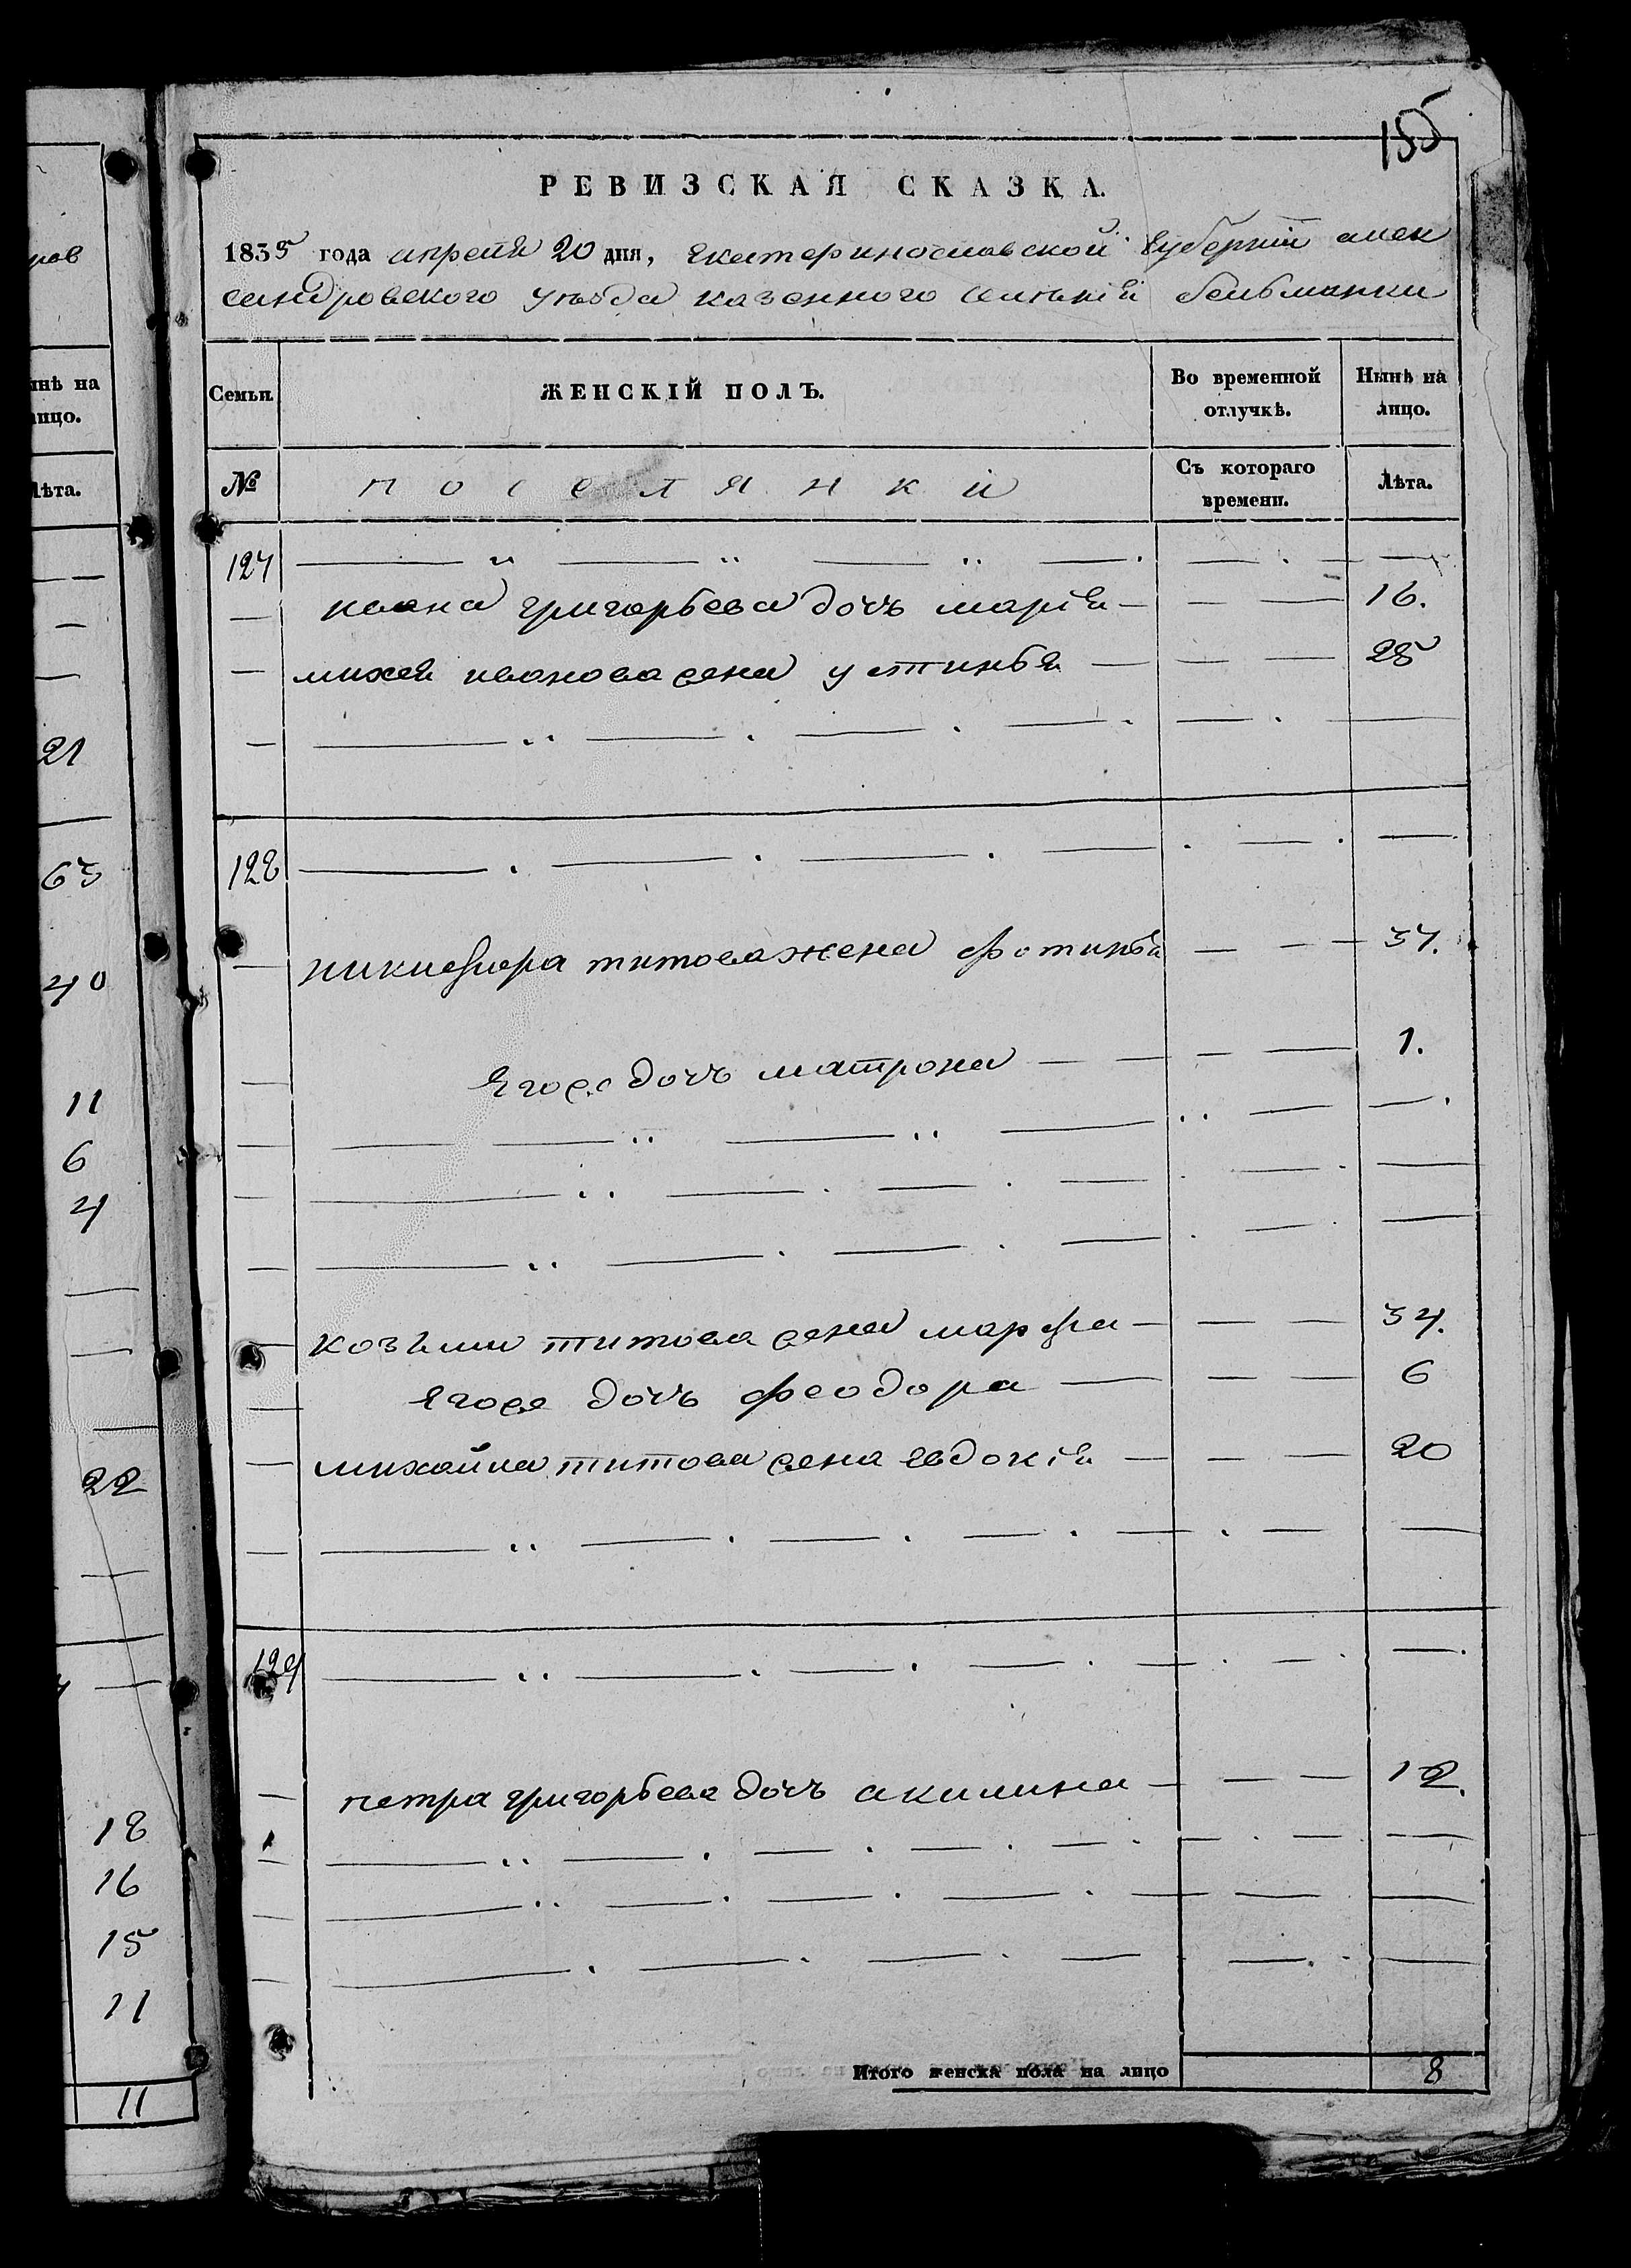 ров
ынѣ на
лицо.
Лѣта.
21
63
40
11
6
4
22
18
16
15
11
11
155
РЕВИЗСКАЯ СКАЗКА.
1835 года апреля 20 дня, Екатериносмавской губернии алек
сандровского уѣзда казенного селения бельманки
Семьи. ЖЕНСКІЙ ПОЛЪ. Во временной отлучкѣ. Нынѣ на лицо.
№ поселянки Съ котораго времени. Лѣта.
127
ивана григорьева дочь марія 16.
михея иванова жена устинья 25
128
никифора титова жена фотинья 37.
Его же дочь матрона 1.
козьми титова жена марфа 34.
Его же дочь феодора 6
михайла титова жена евдокія 20
129
петра григорьева дочь акилина 12.
Итого женска пола на лицо 8